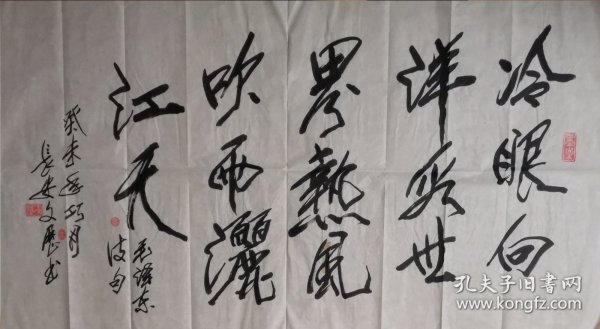 冷眼向
洋看世
界熱風
吹雨灑
江天
毛澤东
诗句
癸未
長安文
书
孔夫子旧书网
www.kongfz.com